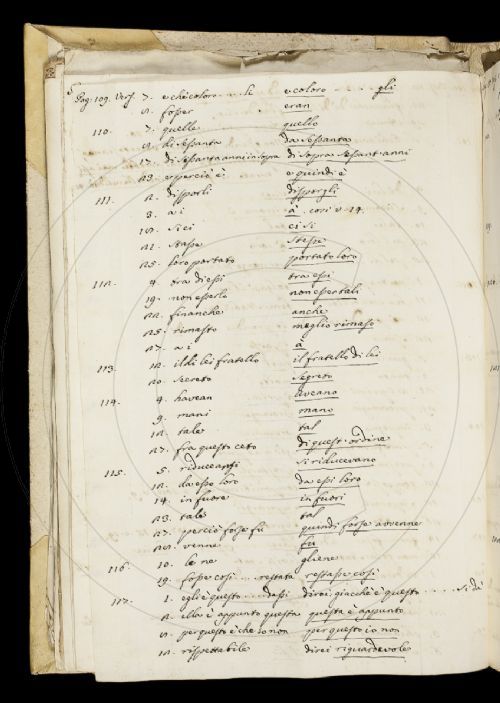 Pag: 109. Vers. 7. e che coloro ... le e coloro gli
fosser eran
110. 7. quelle quelle
di sessanta da sessanta
17. di sessanta anni in sopra di sopra sessant'anni
e perciò è e quindi è
111. disporli disporgli
3. a i à . così v. 14.
si ci ci si
stasse stesse
loro portato portato loro
112. 4. tra di essi tra essi
19. non esserlo non essertali
finanche anche
rimasto meglio rimaso
a i à
113. il di lei fratello il fratello di lei
secreto segreto
114. 4. havean aveano
9. mani mano
tale tal
fra questo ceto di quest'ordine
115. 5. riduceansi si riducevano
da esso loro da essi loro
14. in fuore in fuori
tale tal
perciò forse fù quindi forse avvenne
venne fu
116. 10. le ne gliene
19. fosse così ... restata restasse così
117. 1. egli è questo ... dassi direi, giacchè è questo ..... si dà
ello è appunto questa questa è appunto
per questo è che io non per questo io non
rispettabile direi riguardevole